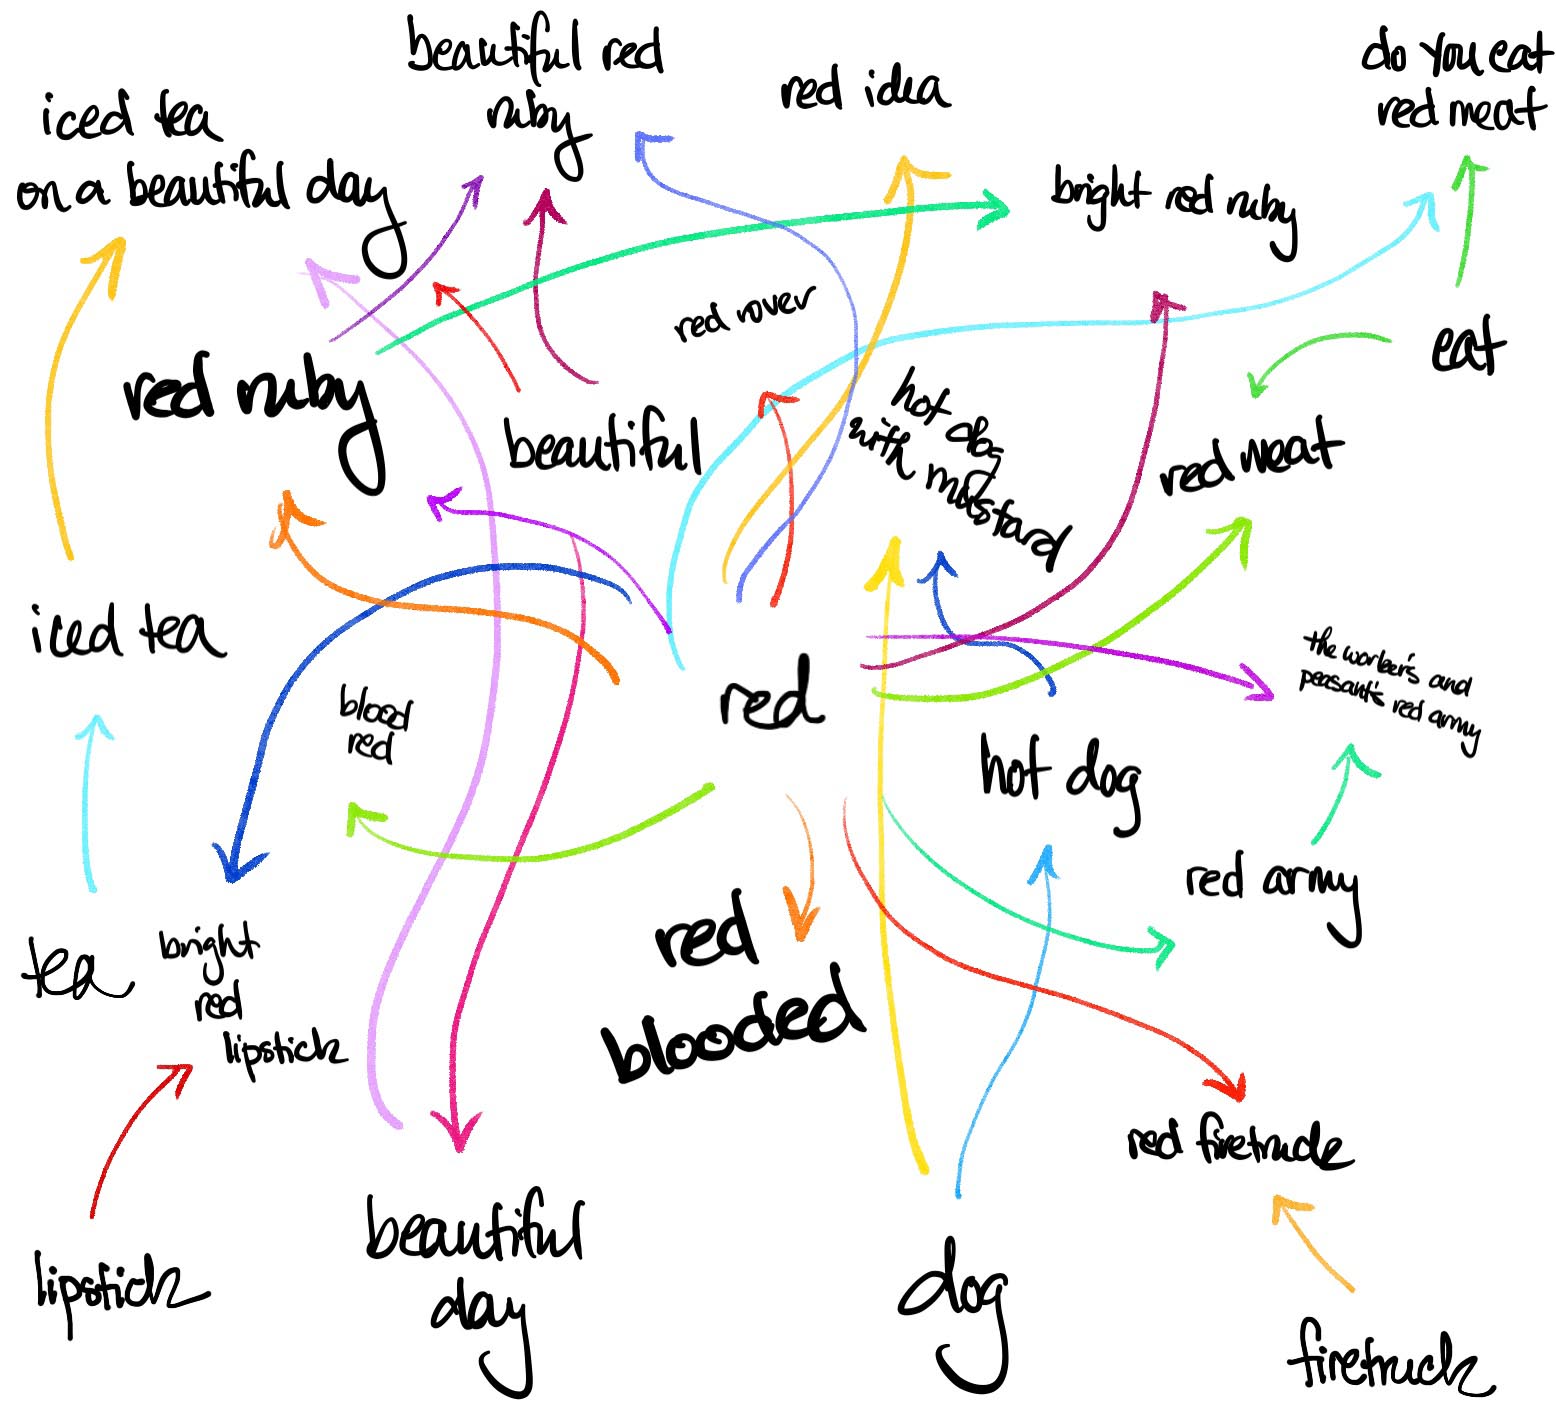 beautiful red
ruby
red idea
do you eat
red meat
iced tea
on a beautiful day
bright red ruby
red rover
red ruby
beautiful
hot dog
with mustard
eat
red meat
iced tea
blood
red
red
the worker's and
peasant's red army
hot dog
red army
tea
bright
red
lipstick
red
blooded
red firetruck
lipstick
beautiful
day
dog
firetruck